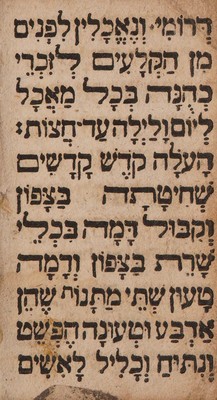 דְּרוֹמִי׃ וְנֶאֱכָלִין לִפְנִים
מִן הַקְּלָעִים לְזִכְרֵי
כְהֻנָּה בְּכָל מַאֲכָל
לְיוֹם וָלַיְלָה עַד חֲצוֹת׃
הָעֹלָה קֹדֶשׁ קָדָשִׁים
שְׁחִיטָתָהּ בַּצָּפוֹן
וְקִבּוּל דָּמָהּ בִּכְלֵי
שָׁרֵת בַּצָּפוֹן וְדָמָהּ
טָעוּן שְׁתֵּי מַתָּנוֹת שֶׁהֵן
אַרְבַּע וּטְעוּנָה הֶפְשֵׁט
וְנִתּוּחַ וְכָלִיל לָאִשִּׁים